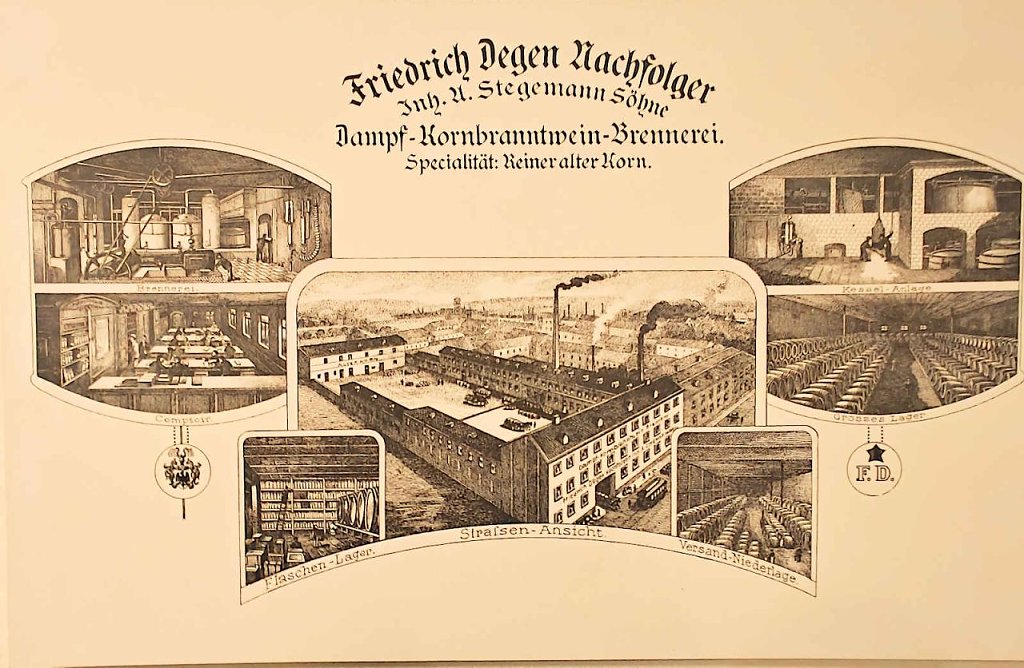 Friedrich Degen Nachfolger
Inh. A. Stegemann Söhne
Dampf-Kornbranntwein-Brennerei.
Specialität: Reiner alter Korn.
Brennerei.
Kessel-Anlage
Comptoir
Grosses Lager
F.D.
Straſsen-Ansicht.
Flaschen-Lager.
Versand-Niederlage